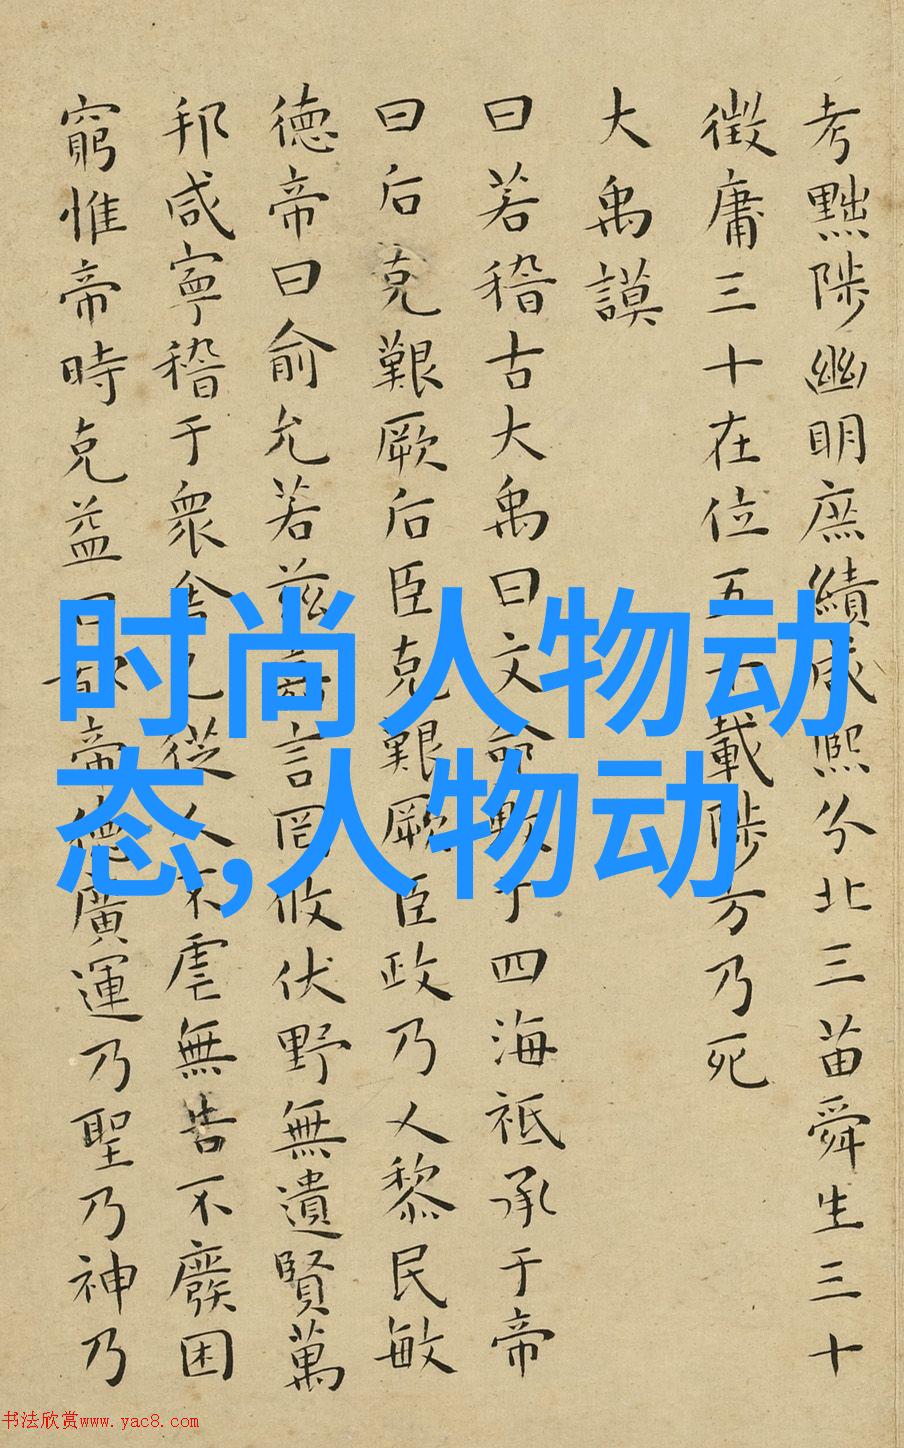 考黜陟幽明庶績咸熙分北三苗舜生三十
徵庸三十在位五十載陟方乃死
大禹謨
曰若稽古大禹曰文命敷于四海祗承于帝
曰后克艱厥后臣克艱厥臣政乃乂黎民敏
德帝曰俞允若茲嘉言罔攸伏野無遺賢萬
邦咸寧稽于衆舍己從人不虐無告不廢困
窮惟帝時克益曰都帝德廣運乃聖乃神乃
时尚人物动
态,人物动
书法欣赏www.yac8.com